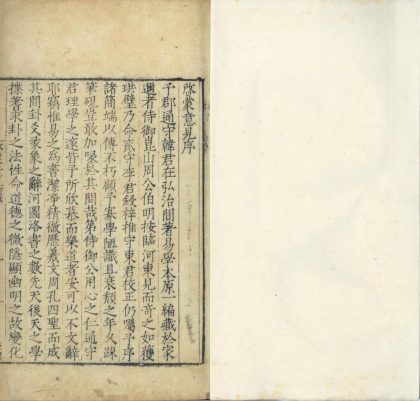 啓蒙意見序
予郡通守韓君在弘治間著易學本原一編藏於家
邇者侍御崑山周公伯明按臨河東見而奇之如獲
珙璧乃命貳守李君鋟梓推守東君校正仍囑予序
諸簡端以傳不朽顧予寡學陋識且衰頽之年久踈
筆硯豈敢加喙於其間哉第侍御公用心之仁通守
君理學之邃皆予所欣慕而樂道者安可以不文辭
耶竊惟易之為書潔淨精微歷羲文周孔四聖而成
其間卦爻彖象之辭河圖洛書之數先天後天之學
揲蓍求卦之法性命道德之微隱顯幽明之故變化